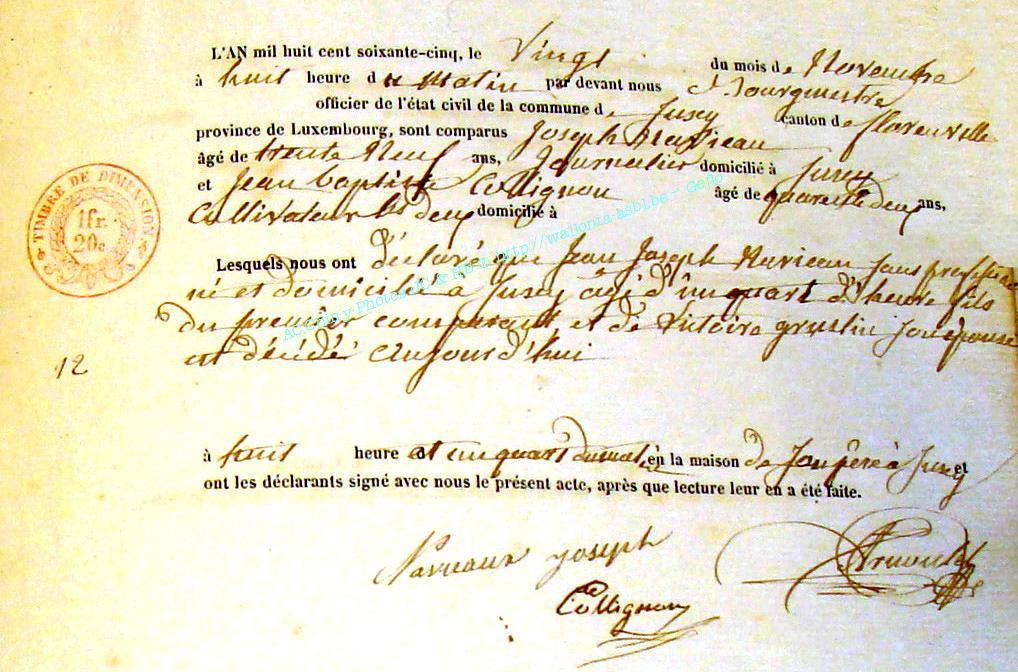 L'AN mil huit cent soixante-cinq, le Vingt du mois de Novembre
à huit heure du Matin par devant nous Bourgmestre
officier de l'état civil de la commune de Jusey canton de florenville
province de Luxembourg, sont comparus Joseph Navieau
âgé de trente Neuf ans, Journalier domicilié à Jusey
et Jean baptiste Collignon âgé de quarante deux ans,
Cultivateur les deux domicilié à
Lesquels nous ont déclaré que Jean Joseph Navieau sans profession
né et domicilié à Jusey âgé d'un quart d'heure fils
du premier comparant et de victoire son épouse
est décédé aujourd'hui
à huit heure et un quart du mat. en la maison de son père à Jusey et
ont les déclarants signé avec nous le présent acte, après que lecture leur en a été faite.
Navieaux joseph
Collignon
TIMBRE DE DIMENSION
1fr.
20c
12
http://wallonia.asbl.be - Gen